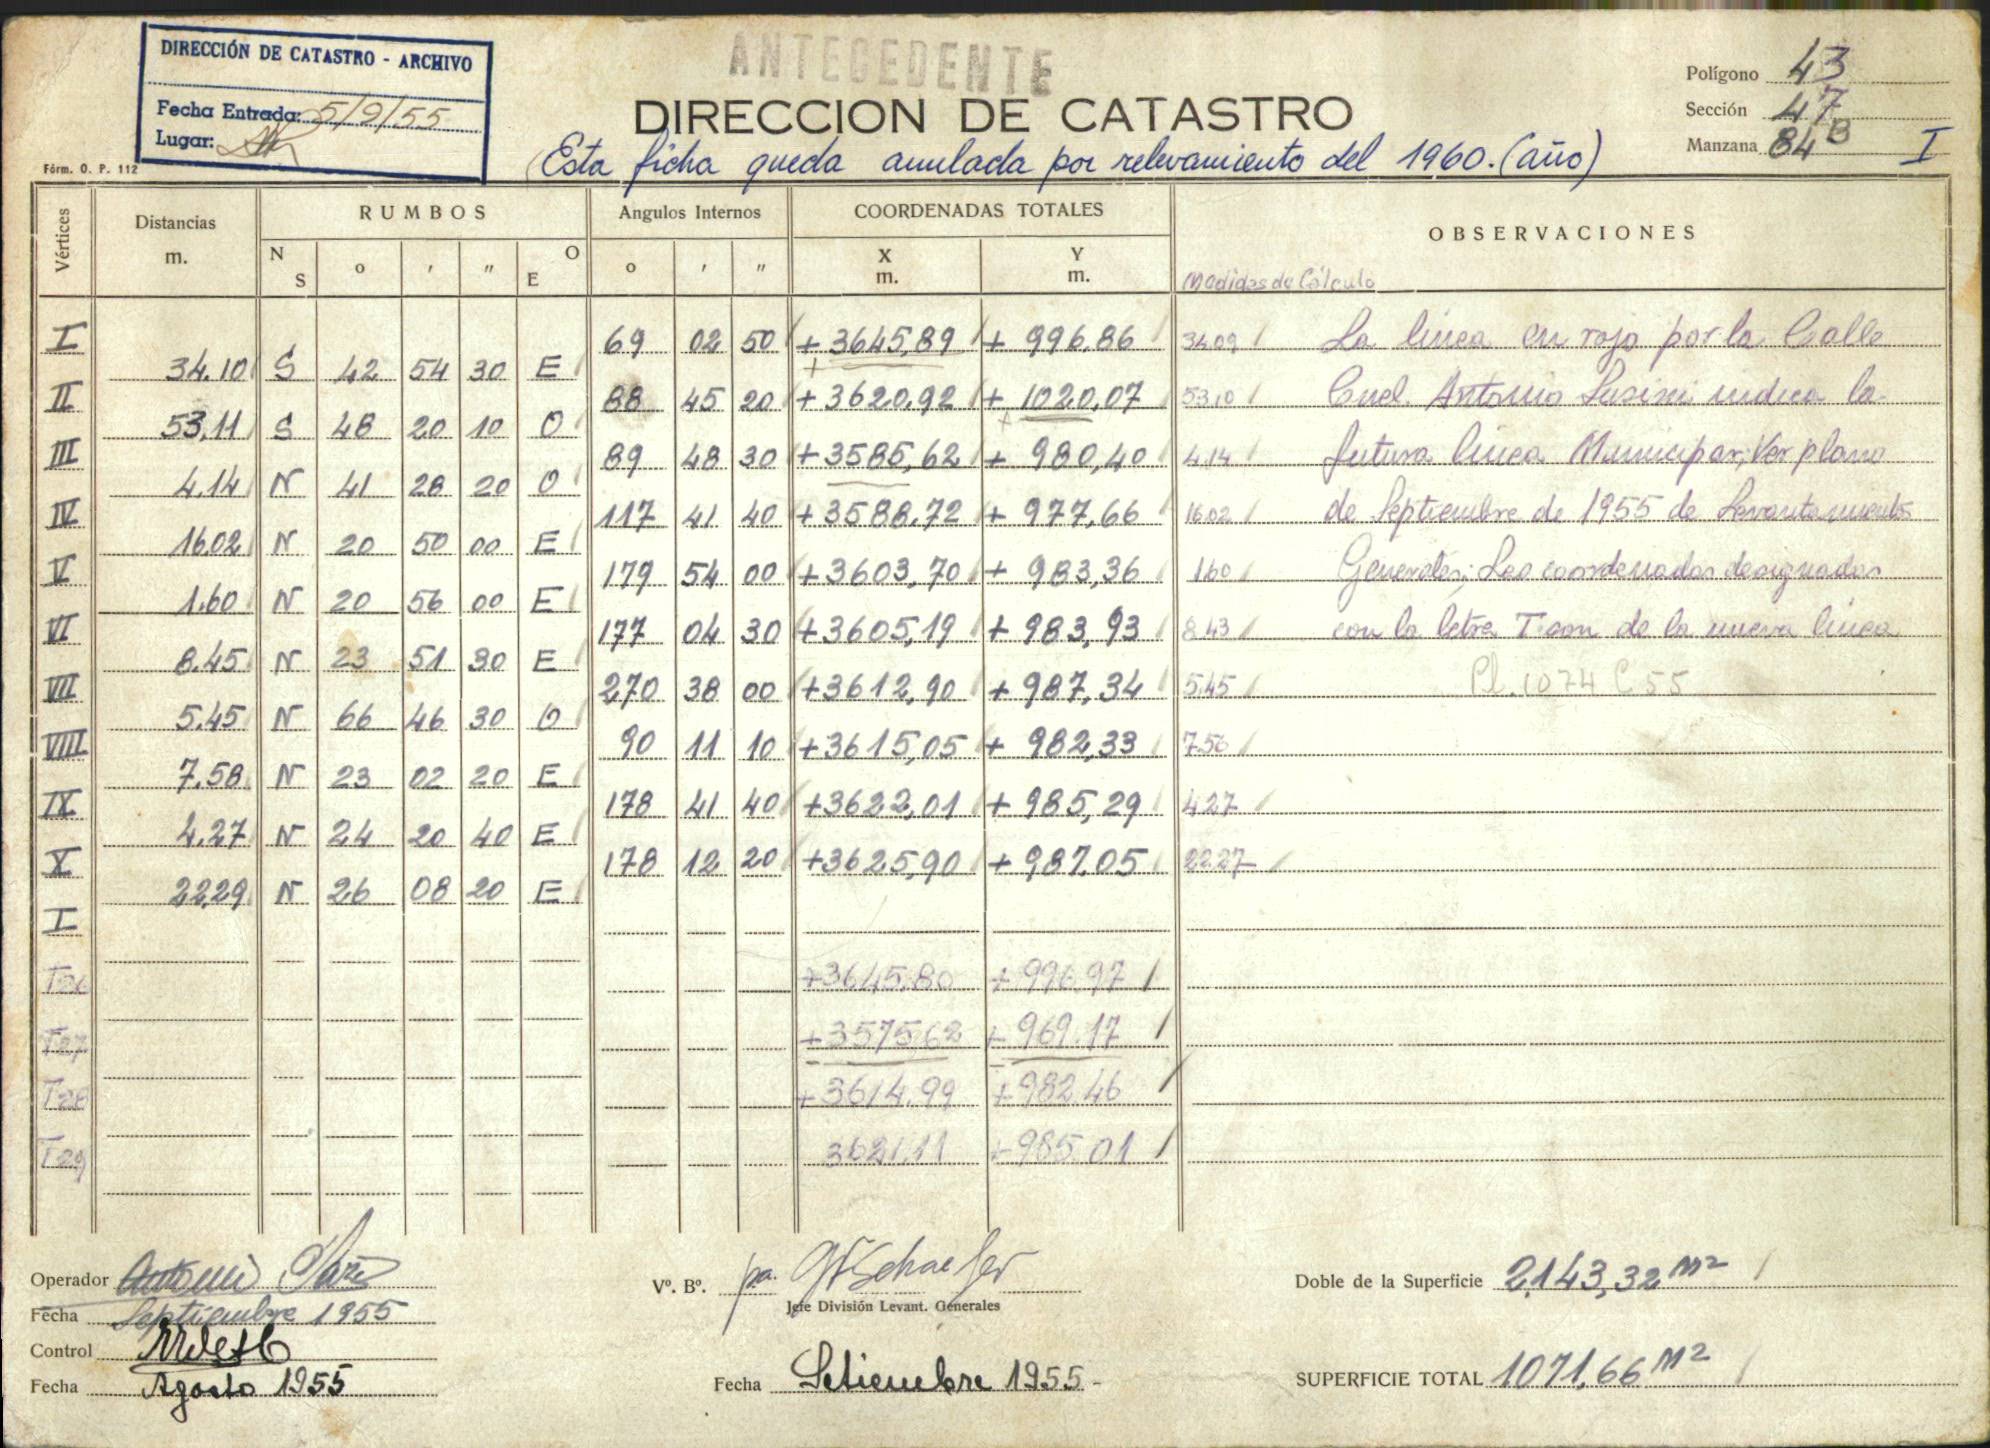 DIRECCIÓN DE CATASTRO - ARCHIVO
Fecha Entrada: 5/9/55
Lugar:
ANTECEDENTE
DIRECCION DE CATASTRO
Polígono 43
Sección 47
Manzana 84B I
Fórm. O. P. 112
(Esta ficha queda anulada por relevamiento del 1960. (año)
Vértices Distancias m. RUMBOS Angulos Internos COORDENADAS TOTALES OBSERVACIONES
N S o ' " O E o ' " X m. Y m. Medidas de Cálculo
I 69 02 50 + 3645,89 + 996,86 34.09 La línea en rojo por la Calle
34.10 S 42 54 30 E
II 88 45 20 + 3620,92 + 1020,07 53.10 Cnel. Antonio Susini indica la
53,11 S 48 20 10 O
III 89 48 30 + 3585,62 + 980,40 4.14 futura línea Municipar; Ver plano
4.14 N 41 28 20 O
IV 117 41 40 + 3588,72 + 977,66 16.02 de Septiembre de 1955 de Levantamientos
16.02 N 20 50 00 E
V 179 54 00 + 3603,70 + 983,36 1.60 Generales; Las coordenadas designadas
1.60 N 20 56 00 E
VI 177 04 30 + 3605,19 + 983,93 8.43 con la letra T son de la nueva línea
8.45 N 23 51 30 E
VII 270 38 00 + 3612,90 + 987,34 5.45 Pl. 1074 C 55
5.45 N 66 46 30 O
VIII 90 11 10 + 3615,05 + 982,33 7.56
7.58 N 23 02 20 E
IX 178 41 40 + 3622,01 + 985,29 4.27
4.27 N 24 20 40 E
X 178 12 20 + 3625,90 + 987,05 22.27
22.29 N 26 08 20 E
I
T26 + 3645.80 + 996.97
T27 + 3575,62 + 969.17
T28 + 3614.99 + 982.46
T29 3621.11 + 985.01
Operador Antonio
Fecha Septiembre 1955
Control
Fecha Agosto 1955
Vº. Bº. pa. Schaefer
Jefe División Levant. Generales
Fecha Setiembre 1955-
Doble de la Superficie 2.143,32 m2
SUPERFICIE TOTAL 1071.66 m2